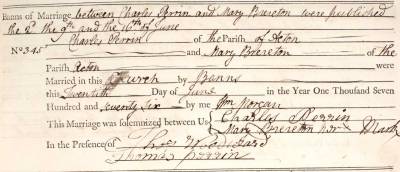 Banns of Marriage between Charles Perrin and Mary Brereton were published
the 2d the 9th and the 16th of June
Charles Perrin of the Parish of Acton
No 345 and Mary Brereton of the
Parish Acton were
Married in this Church by Banns
this Twentieth Day of June in the Year One Thousand Seven
Hundred and seventy Six by me Wm
This Marriage was solemnized between Us Charles Perrin
Mary Brereton her Mark
In the Presence of Thos Woodward
Thomas Perrin